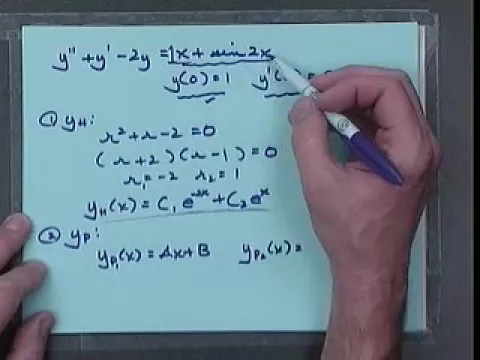 y'' + y' - 2y = 1x + sin 2x
y(0) = 1 y'( =
① yH:
r² + r - 2 = 0
(r + 2)(r - 1) = 0
r₁ = -2 r₂ = 1
yH(x) = C₁e⁻²ˣ + C₂eˣ
② yP:
yP₁(x) = Ax + B yP₂(x) =